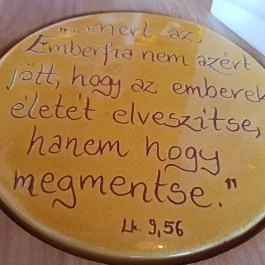 "...mert az
Emberfia nem azért
jött, hogy az emberek
életét elveszítse,
hanem hogy
megmentse."
Lk. 9,56